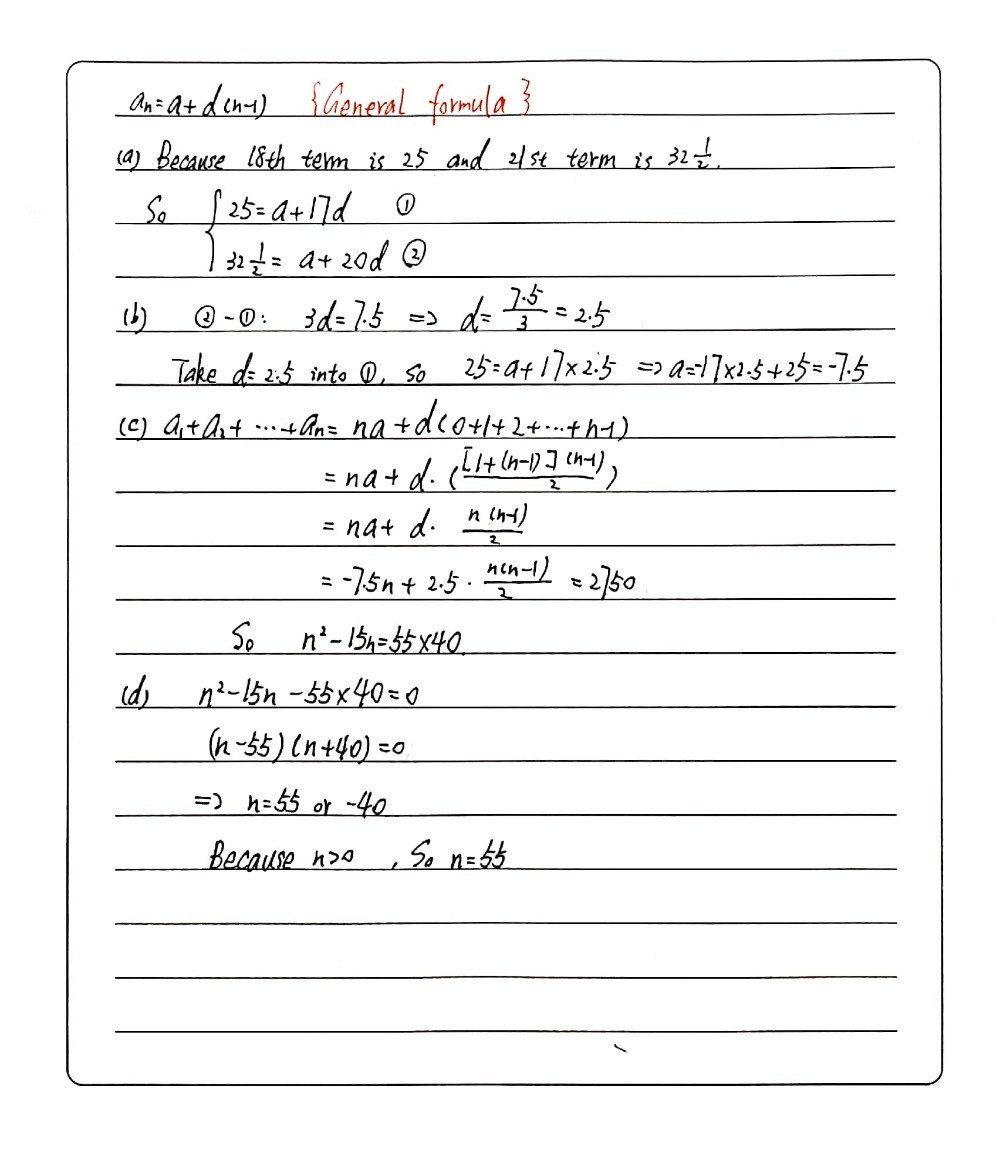 aₙ=a+d(n-1) {General formula}
(a) Because 18th term is 25 and 21st term is 32 1/2.
So { 25=a+17d ①
32 1/2 = a+20d ②
(b) ②-①: 3d=7.5 => d= 7.5/3 = 2.5
Take d=2.5 into ①, so 25=a+17×2.5 => a=-17×2.5+25=-7.5
(c) a₁+a₂+ ⋯ +aₙ= na+d(0+1+2+⋯+n-1)
= na+ d· ([1+(n-1)](n-1)/2)
= na+ d· n(n-1)/2
= -7.5n+ 2.5 · n(n-1)/2 = 2750
So n²-15n=55×40.
(d) n²-15n-55×40=0
(n-55)(n+40)=0
=> n=55 or -40
Because n>0 , So n=55